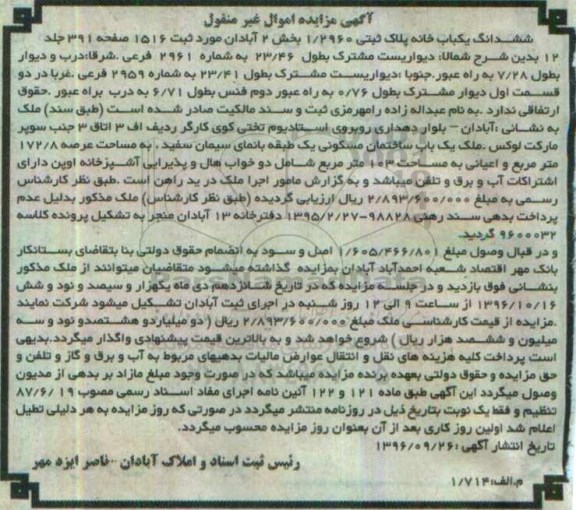 آگهی مزایده اموال غیر منقول
ششدانگ یکباب خانه پلاک ثبتی ۱/۲۹۶۰ بخش ۲ آبادان مورد ثبت ۱۵۱۶ صفحه ۳۹۱ جلد
۱۲ بدین شرح شمالا: دیواریست مشترک بطول ۲۳/۴۶ به شماره ۲۹۶۱ فرعی .شرقا:درب و دیوار
بطول ۷/۲۸ به راه عبور .جنوبا :دیواریست مشترک بطول ۲۳/۴۱ به شماره ۲۹۵۹ فرعی .غربا در دو
قسمت اول دیوار مشترک بطول ۰/۷۶ به راه عبور دوم فنس بطول ۶/۷۱ به درب براه عبور .حقوق
ارتفاقی ندارد .به نام عبداله زاده رامهرمزی ثبت و سند مالکیت صادر شده است (طبق سند) ملک
به نشانی :آبادان – بلوار دهداری روبروی استادیوم تختی کوی کارگر ردیف اف ۳ اتاق ۳ جنب سوپر
مارکت لوکس .ملک یک باب ساختمان مسکونی یک طبقه بانمای سیمان سفید . به مساحت عرصه ۱۷۲/۸
متر مربع و اعیانی به مساحت ۱۰۳ متر مربع شامل دو خواب هال و پذیرایی آشپزخانه اوپن دارای
اشتراکات آب و برق و تلفن میباشد و به گزارش مامور اجرا ملک در ید راهن است .طبق نظر کارشناس
رسمی به مبلغ ۲/۸۹۳/۶۰۰/۰۰۰ ریال ارزیابی گردیده (طبق نظر کارشناس) ملک مذکور بدلیل عدم
پرداخت بدهی سند رهنی ۹۸۸۲۸-۱۳۹۵/۲/۲۷ دفترخانه ۱۳ آبادان منجر به تشکیل پرونده کلاسه
۹۶۰۰۰۳۲ گردید.
و در قبال وصول مبلغ ۱/۶۰۵/۴۶۶/۸۰۱ اصل و سود به انضمام حقوق دولتی بنا بتقاضای بستانکار
بانک مهر اقتصاد شعبه احمدآباد آبادان بمزایده گذاشته میشود متقاضیان میتوانند از ملک مذکور
بنشانی فوق بازدید و در جلسه مزایده که در تاریخ شانزدهم دی ماه یکهزار و سیصد و نود و شش
۱۳۹۶/۱۰/۱۶ از ساعت ۹ الی ۱۲ روز شنبه در اجرای ثبت آبادان تشکیل میشود شرکت نمایند
.مزایده از قیمت کارشناسی ملک مبلغ ۲/۸۹۳/۶۰۰/۰۰۰ ریال ( دو میلیارد و هشتصدو نود و سه
میلیون و ششصد هزار ریال ) شروع خواهد شد و به بالاترین قیمت پیشنهادی واگذار میگردد.بدیهی
است پرداخت کلیه هزینه های نقل و انتقال عوارض مالیات بدهیهای مربوط به آب و برق و گاز و تلفن و
حق مزایده و حقوق دولتی بعهده برنده مزایده میباشد که در صورت وجود مبلغ مازاد بر بدهی از مدیون
وصول میگردد این آگهی طبق ماده ۱۲۱ و ۱۲۲ آئین نامه اجرای مفاد اسناد رسمی مصوب ۸۷/۶/۱۹
تنظیم و فقط یک نوبت بتاریخ ذیل در روزنامه منتشر میگردد در صورتی که روز مزایده به هر دلیلی تطیل
اعلام شد اولین روز کاری بعد از آن بعنوان روز مزایده محسوب میگردد.
تاریخ انتشار آگهی :۱۳۹۶/۰۹/۲۶
رئیس ثبت اسناد و املاک آبادان -ناصر ایزه مهر
م.الف:۱/۷۱۴